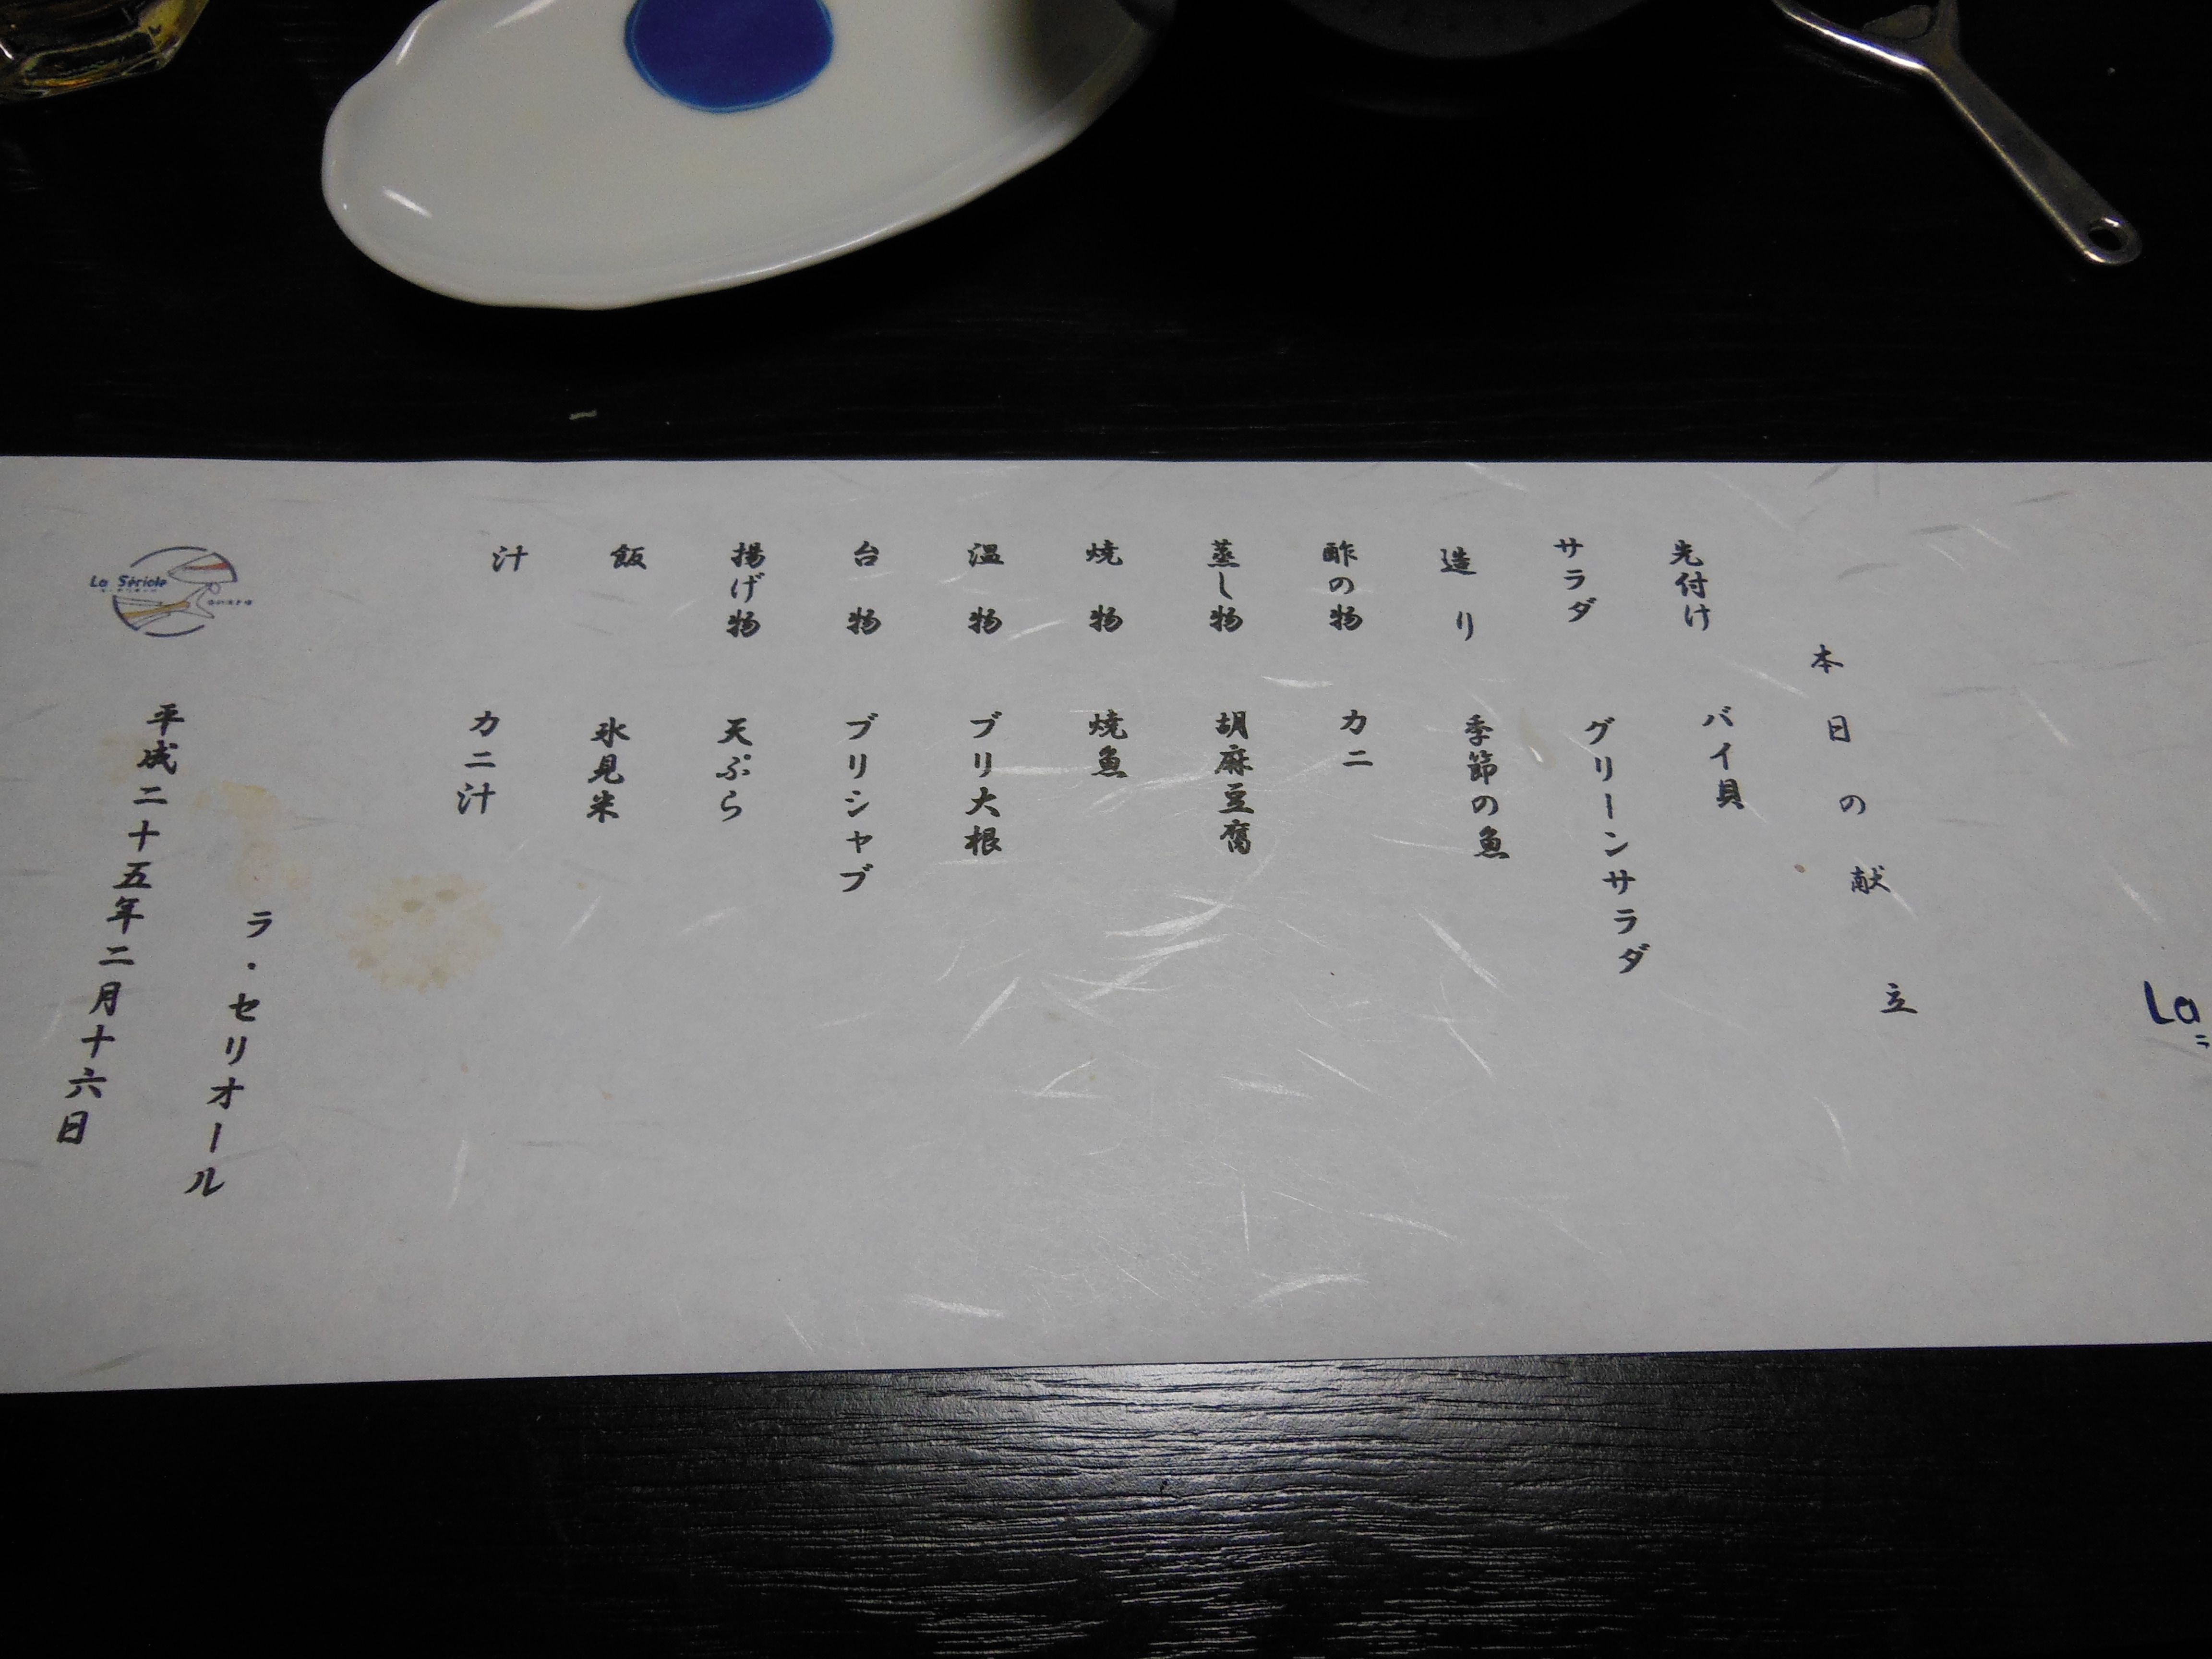 本日の献立
先付け バイ貝
サラダ グリーンサラダ
造り 季節の魚
酢の物 カニ
蒸し物 胡麻豆腐
焼物 焼魚
温物 ブリ大根
台物 ブリシャブ
揚げ物 天ぷら
飯 氷見米
汁 カニ汁
ラ・セリオール
平成二十五年二月十六日
La Sériole
La